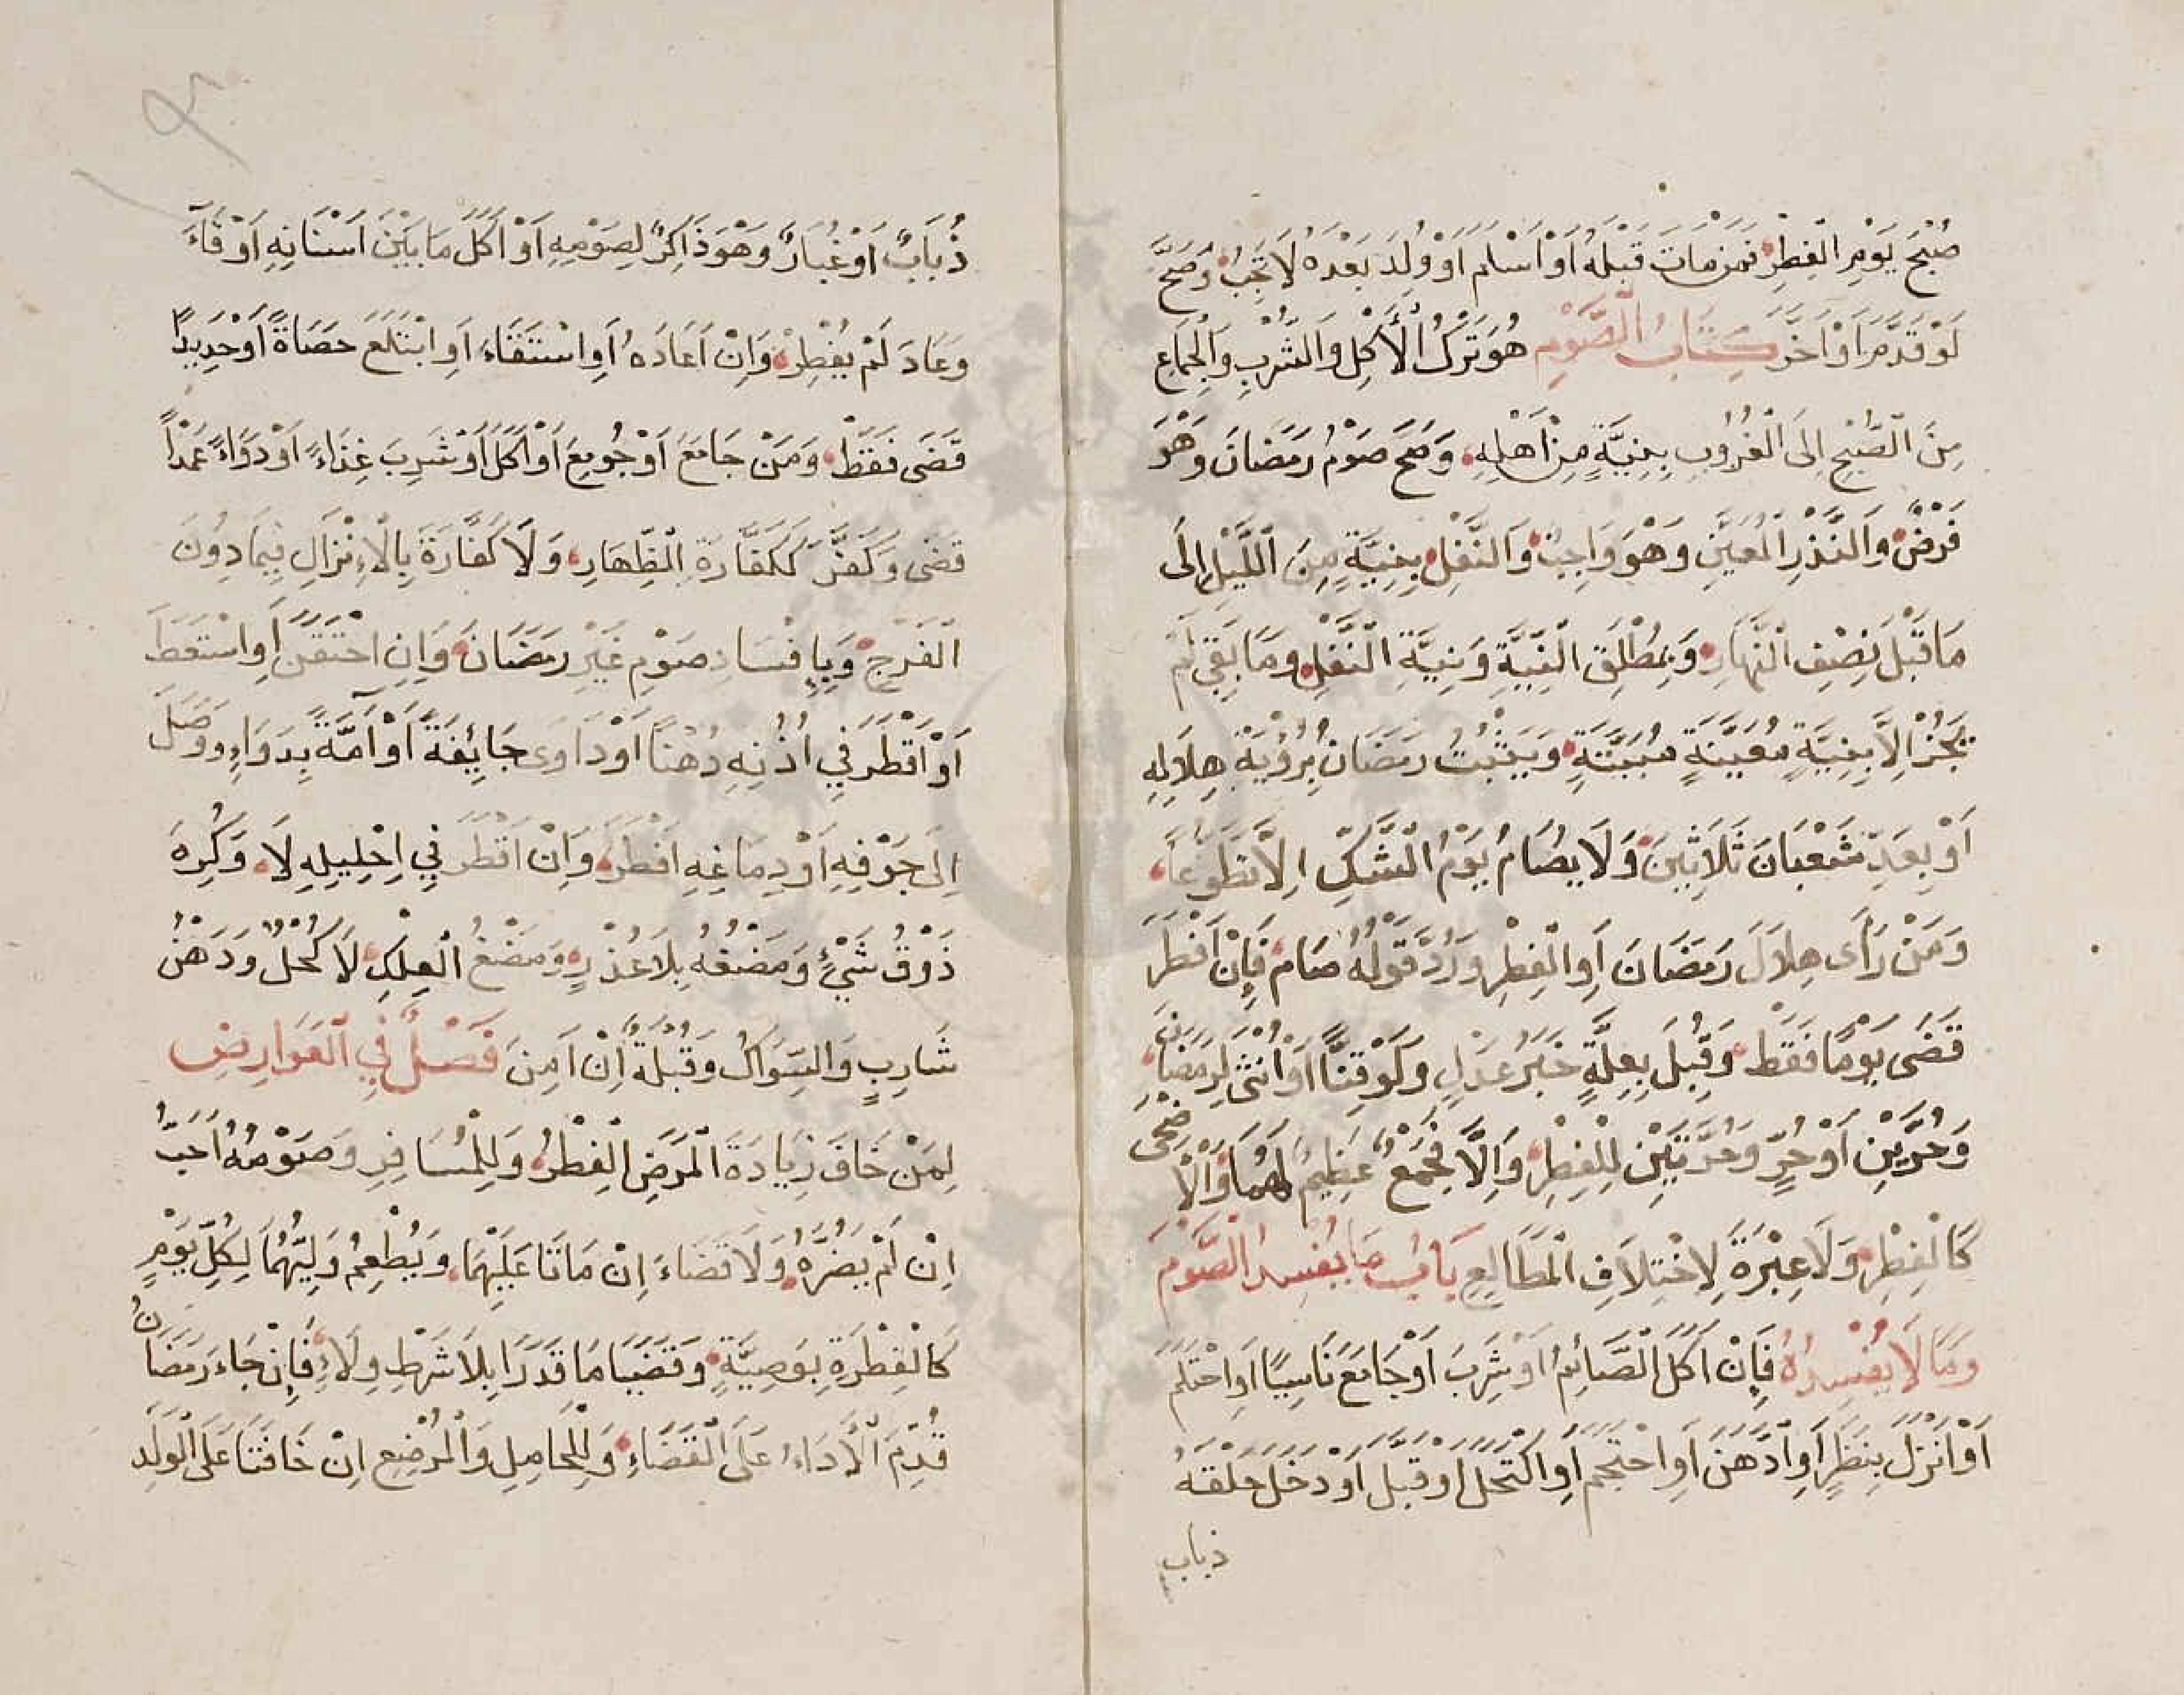 صُبْحَ يَوْمِ الْفِطْرِ فَمَنْ مَاتَ قَبْلَهُ اَوْ اَسْلَمَ اَوْ وُلِدَ بَعْدَهُ لَا تَجِبُ وَصَحَّ
لَوْ قَدَّمَ اَوْ اَخَّرَ كِتَابُ الصَّوْمِ هُوَ تَرْكُ الْأَكْلِ وَالشُّرْبِ وَالْجِمَاعِ
مِنَ الصُّبْحِ اِلَى الْغُرُوبِ بِنِيَّةٍ مِنْ اَهْلِهِ وَصَحَّ صَوْمُ رَمَضَانَ وَهْوَ
فَرْضٌ وَالنَّذْرِ الْمُعَيَّنِ وَهْوَ وَاجِبٌ وَالنَّفْلِ بِنِيَّةٍ مِنَ اللَّيْلِ اِلَى
مَا قَبْلَ نِصْفِ النَّهَارِ وَبِمُطْلَقِ النِّيَّةِ وَبِنِيَّةِ النَّفْلِ وَمَا بَقِيَ لَمْ
يَجُزْ اِلَّا بِنِيَّةٍ مُعَيَّنَةٍ مُبَيَّتَةٍ وَيَثْبُتُ رَمَضَانُ بِرُؤْيَةِ هِلَالِهِ
اَوْ بِعَدِّ شَعْبَانَ ثَلَاثِينَ وَلَا يُصَامُ يَوْمُ الشَّكِّ اِلَّا تَطَوُّعًا
وَمَنْ رَأَى هِلَالَ رَمَضَانَ اَوِ الْفِطْرِ وَرُدَّ قَوْلُهُ صَامَ فَاِنْ اَفْطَرَ
قَضَى يَوْمًا فَقَطْ وَقُبِلَ بِعِلَّةٍ خَبَرُ عَدْلٍ وَلَوْ قِنًّا اَوْ اُنْثَى لِرَمَضَانَ
وَحُرَّيْنِ اَوْ حُرٍّ وَحُرَّتَيْنِ لِلْفِطْرِ وَاِلَّا فَجَمْعٌ عَظِيمٌ لَهُمَا وَالْاَضْحَى
كَالْفِطْرِ وَلَا عِبْرَةَ لِاخْتِلَافِ الْمَطَالِعِ بَابُ مَا يُفْسِدُ الصَّوْمَ
وَمَا لَا يُفْسِدُهُ فَاِنْ اَكَلَ الصَّائِمُ اَوْ شَرِبَ اَوْ جَامَعَ نَاسِيًا اَوِ احْتَلَمَ
اَوْ اَنْزَلَ بِنَظَرٍ اَوِ ادَّهَنَ اَوِ احْتَجَمَ اَوِ اكْتَحَلَ اَوْ قَبَّلَ اَوْ دَخَلَ حَلْقَهُ
ذباب
ذُبَابٌ اَوْ غُبَارٌ وَهْوَ ذَاكِرٌ لِصَوْمِهِ اَوْ اَكَلَ مَا بَيْنَ اَسْنَانِهِ اَوْ قَاءَ
وَعَادَ لَمْ يُفْطِرْ وَاِنْ اَعَادَهُ اَوِ اسْتَقَاءَ اَوِ ابْتَلَعَ حَصَاةً اَوْ حَدِيدًا
قَضَى فَقَطْ وَمَنْ جَامَعَ اَوْ جُومِعَ اَوْ اَكَلَ اَوْ شَرِبَ غِذَاءً اَوْ دَوَاءً عَمْدًا
قَضَى وَكَفَّرَ كَكَفَّارَةِ الظِّهَارِ وَلَا كَفَّارَةَ بِالْاِنْزَالِ فِيمَا دُونَ
الْفَرْجِ وَبِاِفْسَادِ صَوْمِ غَيْرِ رَمَضَانَ وَاِنِ احْتَقَنَ اَوِ اسْتَعَطَ
اَوْ اَقْطَرَ فِي اُذُنِهِ دُهْنًا اَوْ دَاوَى جَائِفَةً اَوْ آمَّةً بِدَوَاءٍ وَوَصَلَ
اِلَى جَوْفِهِ اَوْ دِمَاغِهِ اَفْطَرَ وَاِنْ اَقْطَرَ فِي اِحْلِيلِهِ لَا وَكُرِهَ
ذَوْقُ شَيْءٍ وَمَضْغُهُ بِلَا عُذْرٍ وَمَضْغُ الْعِلْكِ لَا كُحْلٌ وَدَهْنُ
شَارِبٍ وَالسِّوَاكُ وَقُبْلَةٌ اِنْ اَمِنَ فَصْلٌ فِي الْعَوَارِضِ
لِمَنْ خَافَ زِيَادَةَ الْمَرَضِ الْفِطْرُ وَلِلْمُسَافِرِ وَصَوْمُهُ اَحَبُّ
اِنْ لَمْ يَضُرَّهُ وَلَا قَضَاءَ اِنْ مَاتَا عَلَيْهِمَا وَيُطْعِمُ وَلِيُّهُمَا لِكُلِّ يَوْمٍ
كَالْفِطْرَةِ بِوَصِيَّةٍ وَقَضَيَا مَا قَدَرَا بِلَا شَرْطِ وِلَاءٍ فَاِنْ جَاءَ رَمَضَانُ
قُدِّمَ الْأَدَاءُ عَلَى الْقَضَاءِ وَلِلْحَامِلِ وَالْمُرْضِعِ اِنْ خَافَتَا عَلَى الْوَلَدِ